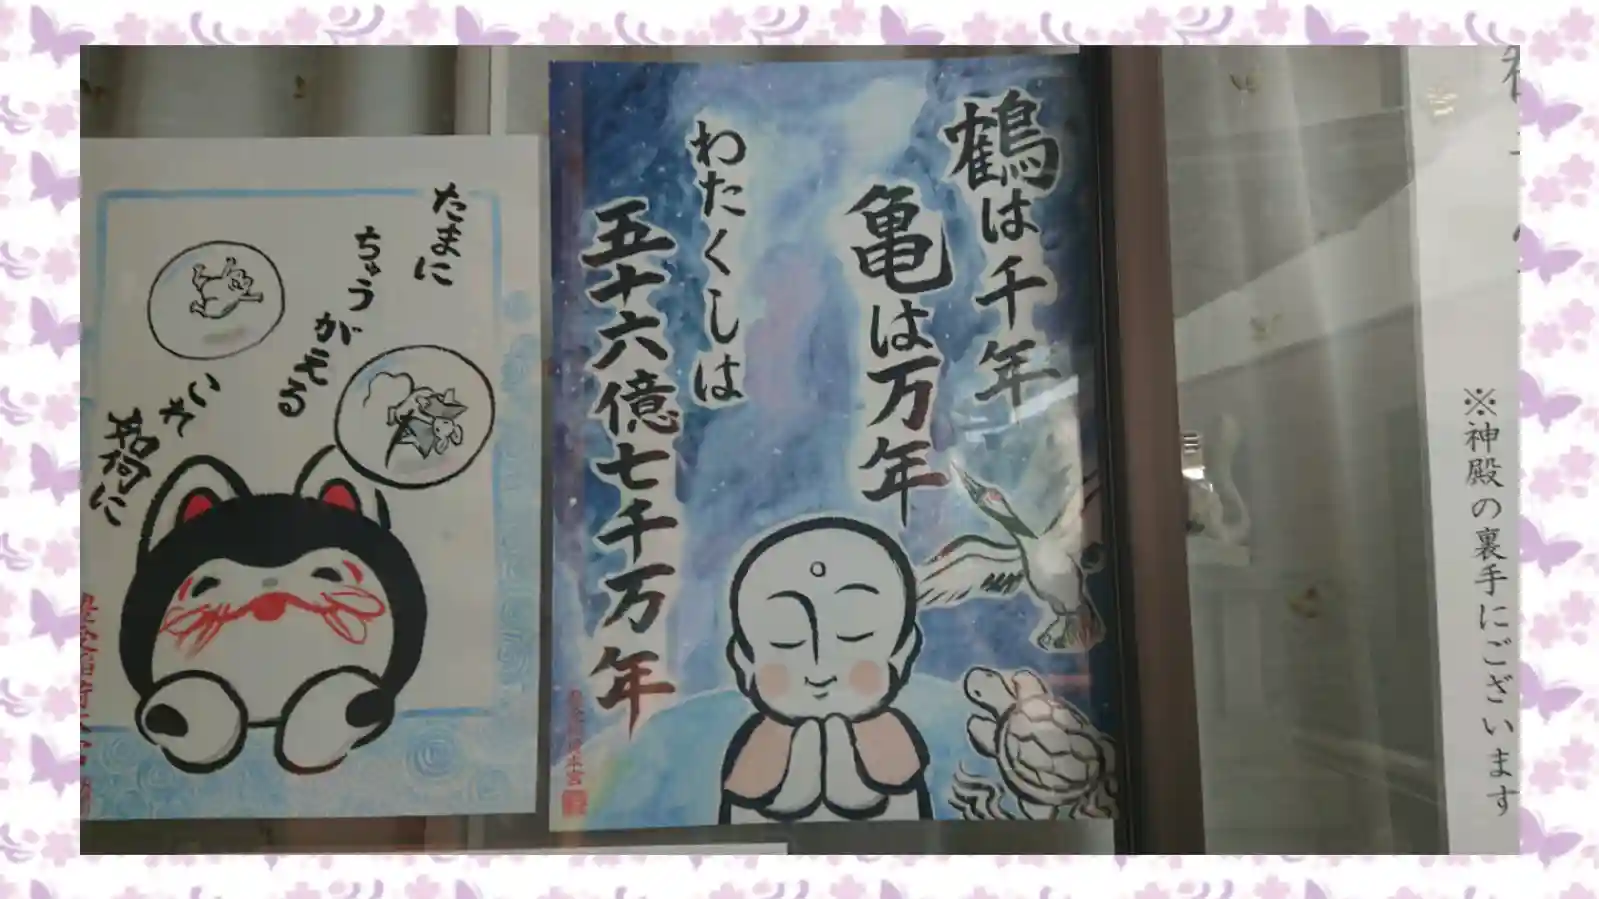 ※神殿の裏手にございます
鶴は千年
亀は万年
わたくしは
五十六億七千万年
たまに
ちゅうがえる